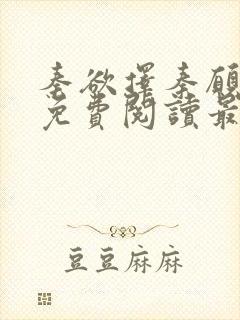 秦欲擇秦願
免費閱讀最
豆豆麻麻